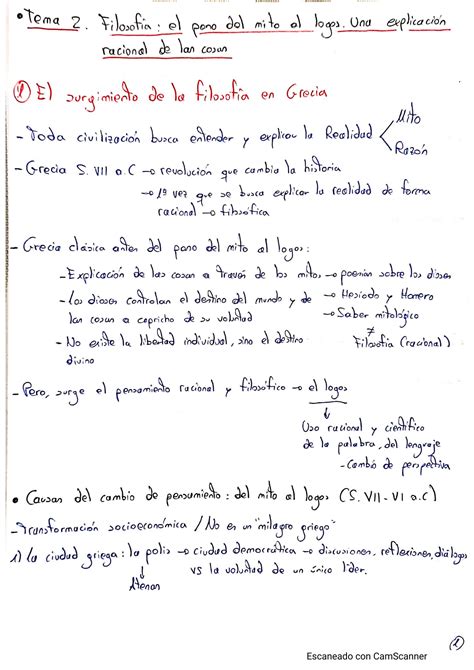 • Tema 2. Filosofía: el paso del mito al logos. Una explicación
racional de las cosas
① El surgimiento de la filosofía en Grecia
- Toda civilización busca entender y explicar la Realidad < Mito
Razón
- Grecia S. VII a.C → revolución que cambia la historia
→ 1ª vez que se busca explicar la realidad de forma
racional → filosófica
- Grecia clásica antes del paso del mito al logos:
- Explicación de las cosas a través de los mitos → poemas sobre los dioses
- Los dioses controlan el destino del mundo y de → Hesíodo y Homero
las cosas a capricho de su voluntad → Saber mitológico
≠
- No existe la libertad individual, sino el destino Filosofía (racional)
divino
- Pero, surge el pensamiento racional y filosófico → el logos
↓
Uso racional y científico
de la palabra, del lenguaje
- Cambio de perspectiva
• Causas del cambio de pensamiento: del mito al logos (S. VII - VI a.C)
- Transformación socioeconómica / No es un "milagro griego"
1) la ciudad griega: la polis → ciudad democrática → discusiones, reflexiones, diálogos
↓ vs la voluntad de un único líder.
Atenas
①
Escaneado con CamScanner